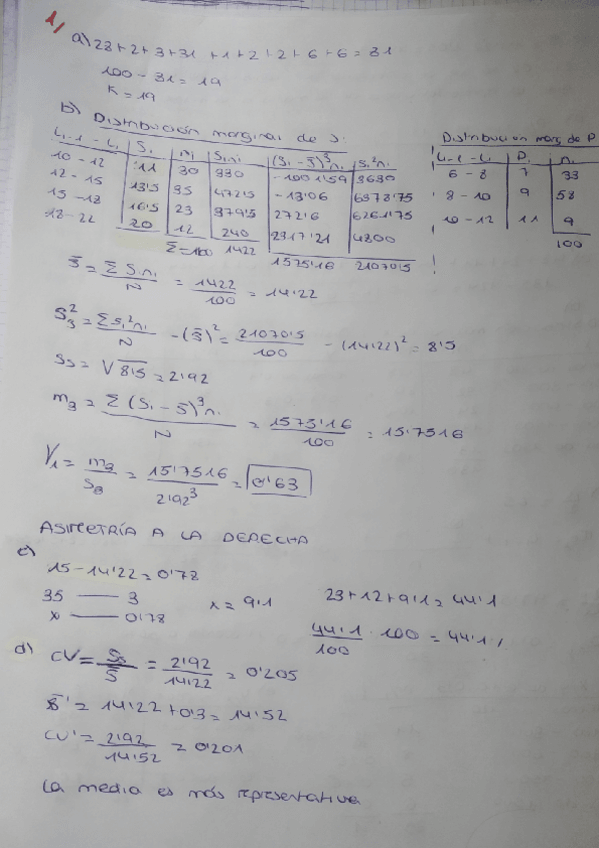 1/
a) 23+2+3+31+1+2+2+6+6=81
100-81=19
K=19
b) Distribución marginal de S.
Li-1 - Li | Si | ni | Si ni | (Si - S̄)³ni | Si²ni
10-12 | 11 | 30 | 330 | -1001'59 | 3630
12-15 | 13'5 | 35 | 472'5 | -13'06 | 6378'75
15-18 | 16'5 | 23 | 379'5 | 272'6 | 6261'75
18-22 | 20 | 12 | 240 | 2317'21 | 4800
Σ=100 1422 1575'16 21070'5
Distribucion marg. de P
Li-1 - Li | Pi | ni
6-8 | 7 | 33
8-10 | 9 | 58
10-12 | 11 | 9
100
S̄ = Σ Si ni / N = 1422/100 = 14'22
S²s = Σ Si² ni / N - (S̄)² = 21070'5/100 - (14'22)² = 8'5
Ss = √8'5 = 2'92
m3 = Σ (Si - S̄)³ ni / N = 1575'16/100 = 15'7516
γ1 = m3/Ss = 15'7516/2'92³ = 0'63
ASIMETRÍA A LA DERECHA
c)
15-14'22=0'78
35 — 3
x — 0'78
x = 9'1
23+12+9'1=44'1
44'1/100 · 100 = 44'1%
d) CV = Ss/S̄ = 2'92/14'22 = 0'205
S̄' = 14'22+0'3 = 14'52
CV' = 2'92/14'52 = 0'201
La media es más representativa